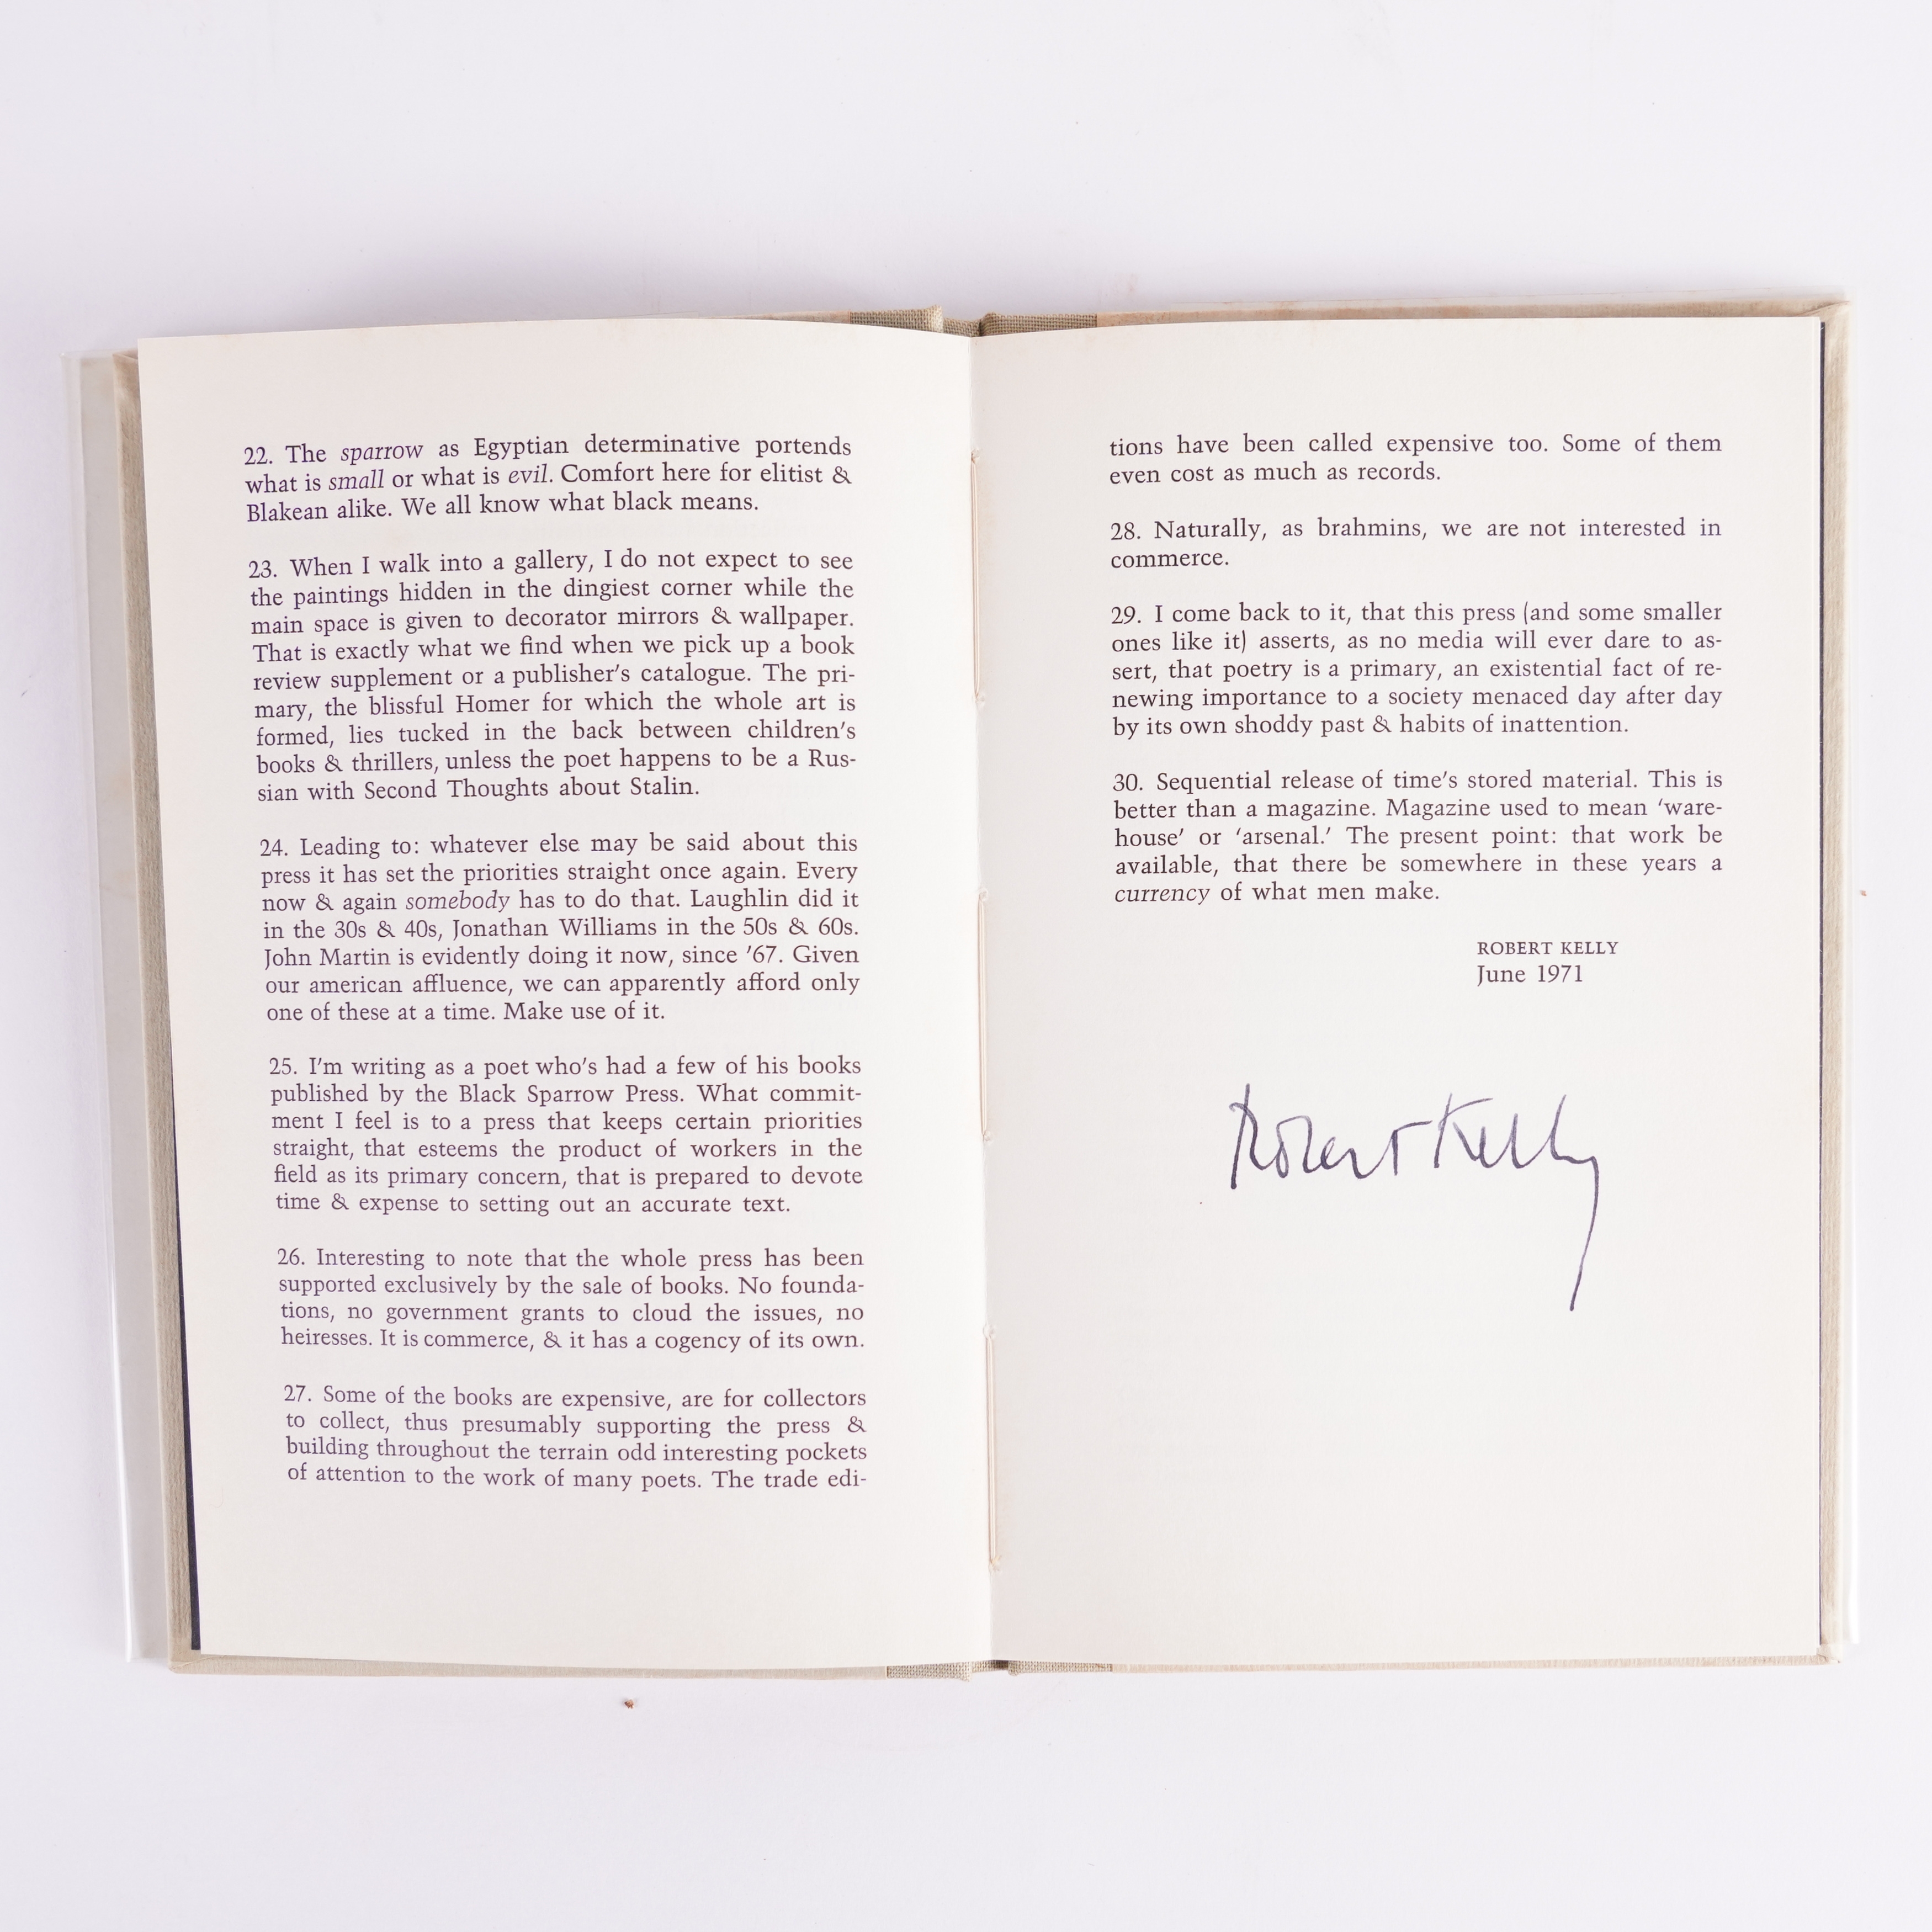 22. The sparrow as Egyptian determinative portends
what is small or what is evil. Comfort here for elitist &
Blakean alike. We all know what black means.
23. When I walk into a gallery, I do not expect to see
the paintings hidden in the dingiest corner while the
main space is given to decorator mirrors & wallpaper.
That is exactly what we find when we pick up a book
review supplement or a publisher's catalogue. The pri-
mary, the blissful Homer for which the whole art is
formed, lies tucked in the back between children's
books & thrillers, unless the poet happens to be a Rus-
sian with Second Thoughts about Stalin.
24. Leading to: whatever else may be said about this
press it has set the priorities straight once again. Every
now & again somebody has to do that. Laughlin did it
in the 30s & 40s, Jonathan Williams in the 50s & 60s.
John Martin is evidently doing it now, since '67. Given
our american affluence, we can apparently afford only
one of these at a time. Make use of it.
25. I'm writing as a poet who's had a few of his books
published by the Black Sparrow Press. What commit-
ment I feel is to a press that keeps certain priorities
straight, that esteems the product of workers in the
field as its primary concern, that is prepared to devote
time & expense to setting out an accurate text.
26. Interesting to note that the whole press has been
supported exclusively by the sale of books. No founda-
tions, no government grants to cloud the issues, no
heiresses. It is commerce, & it has a cogency of its own.
27. Some of the books are expensive, are for collectors
to collect, thus presumably supporting the press &
building throughout the terrain odd interesting pockets
of attention to the work of many poets. The trade edi-
tions have been called expensive too. Some of them
even cost as much as records.
28. Naturally, as brahmins, we are not interested in
commerce.
29. I come back to it, that this press (and some smaller
ones like it) asserts, as no media will ever dare to as-
sert, that poetry is a primary, an existential fact of re-
newing importance to a society menaced day after day
by its own shoddy past & habits of inattention.
30. Sequential release of time's stored material. This is
better than a magazine. Magazine used to mean 'ware-
house' or 'arsenal.' The present point: that work be
available, that there be somewhere in these years a
currency of what men make.
ROBERT KELLY
June 1971
Robert Kelly